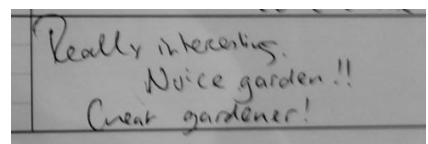 Really interesting.
Nuice garden!!
Great gardener!